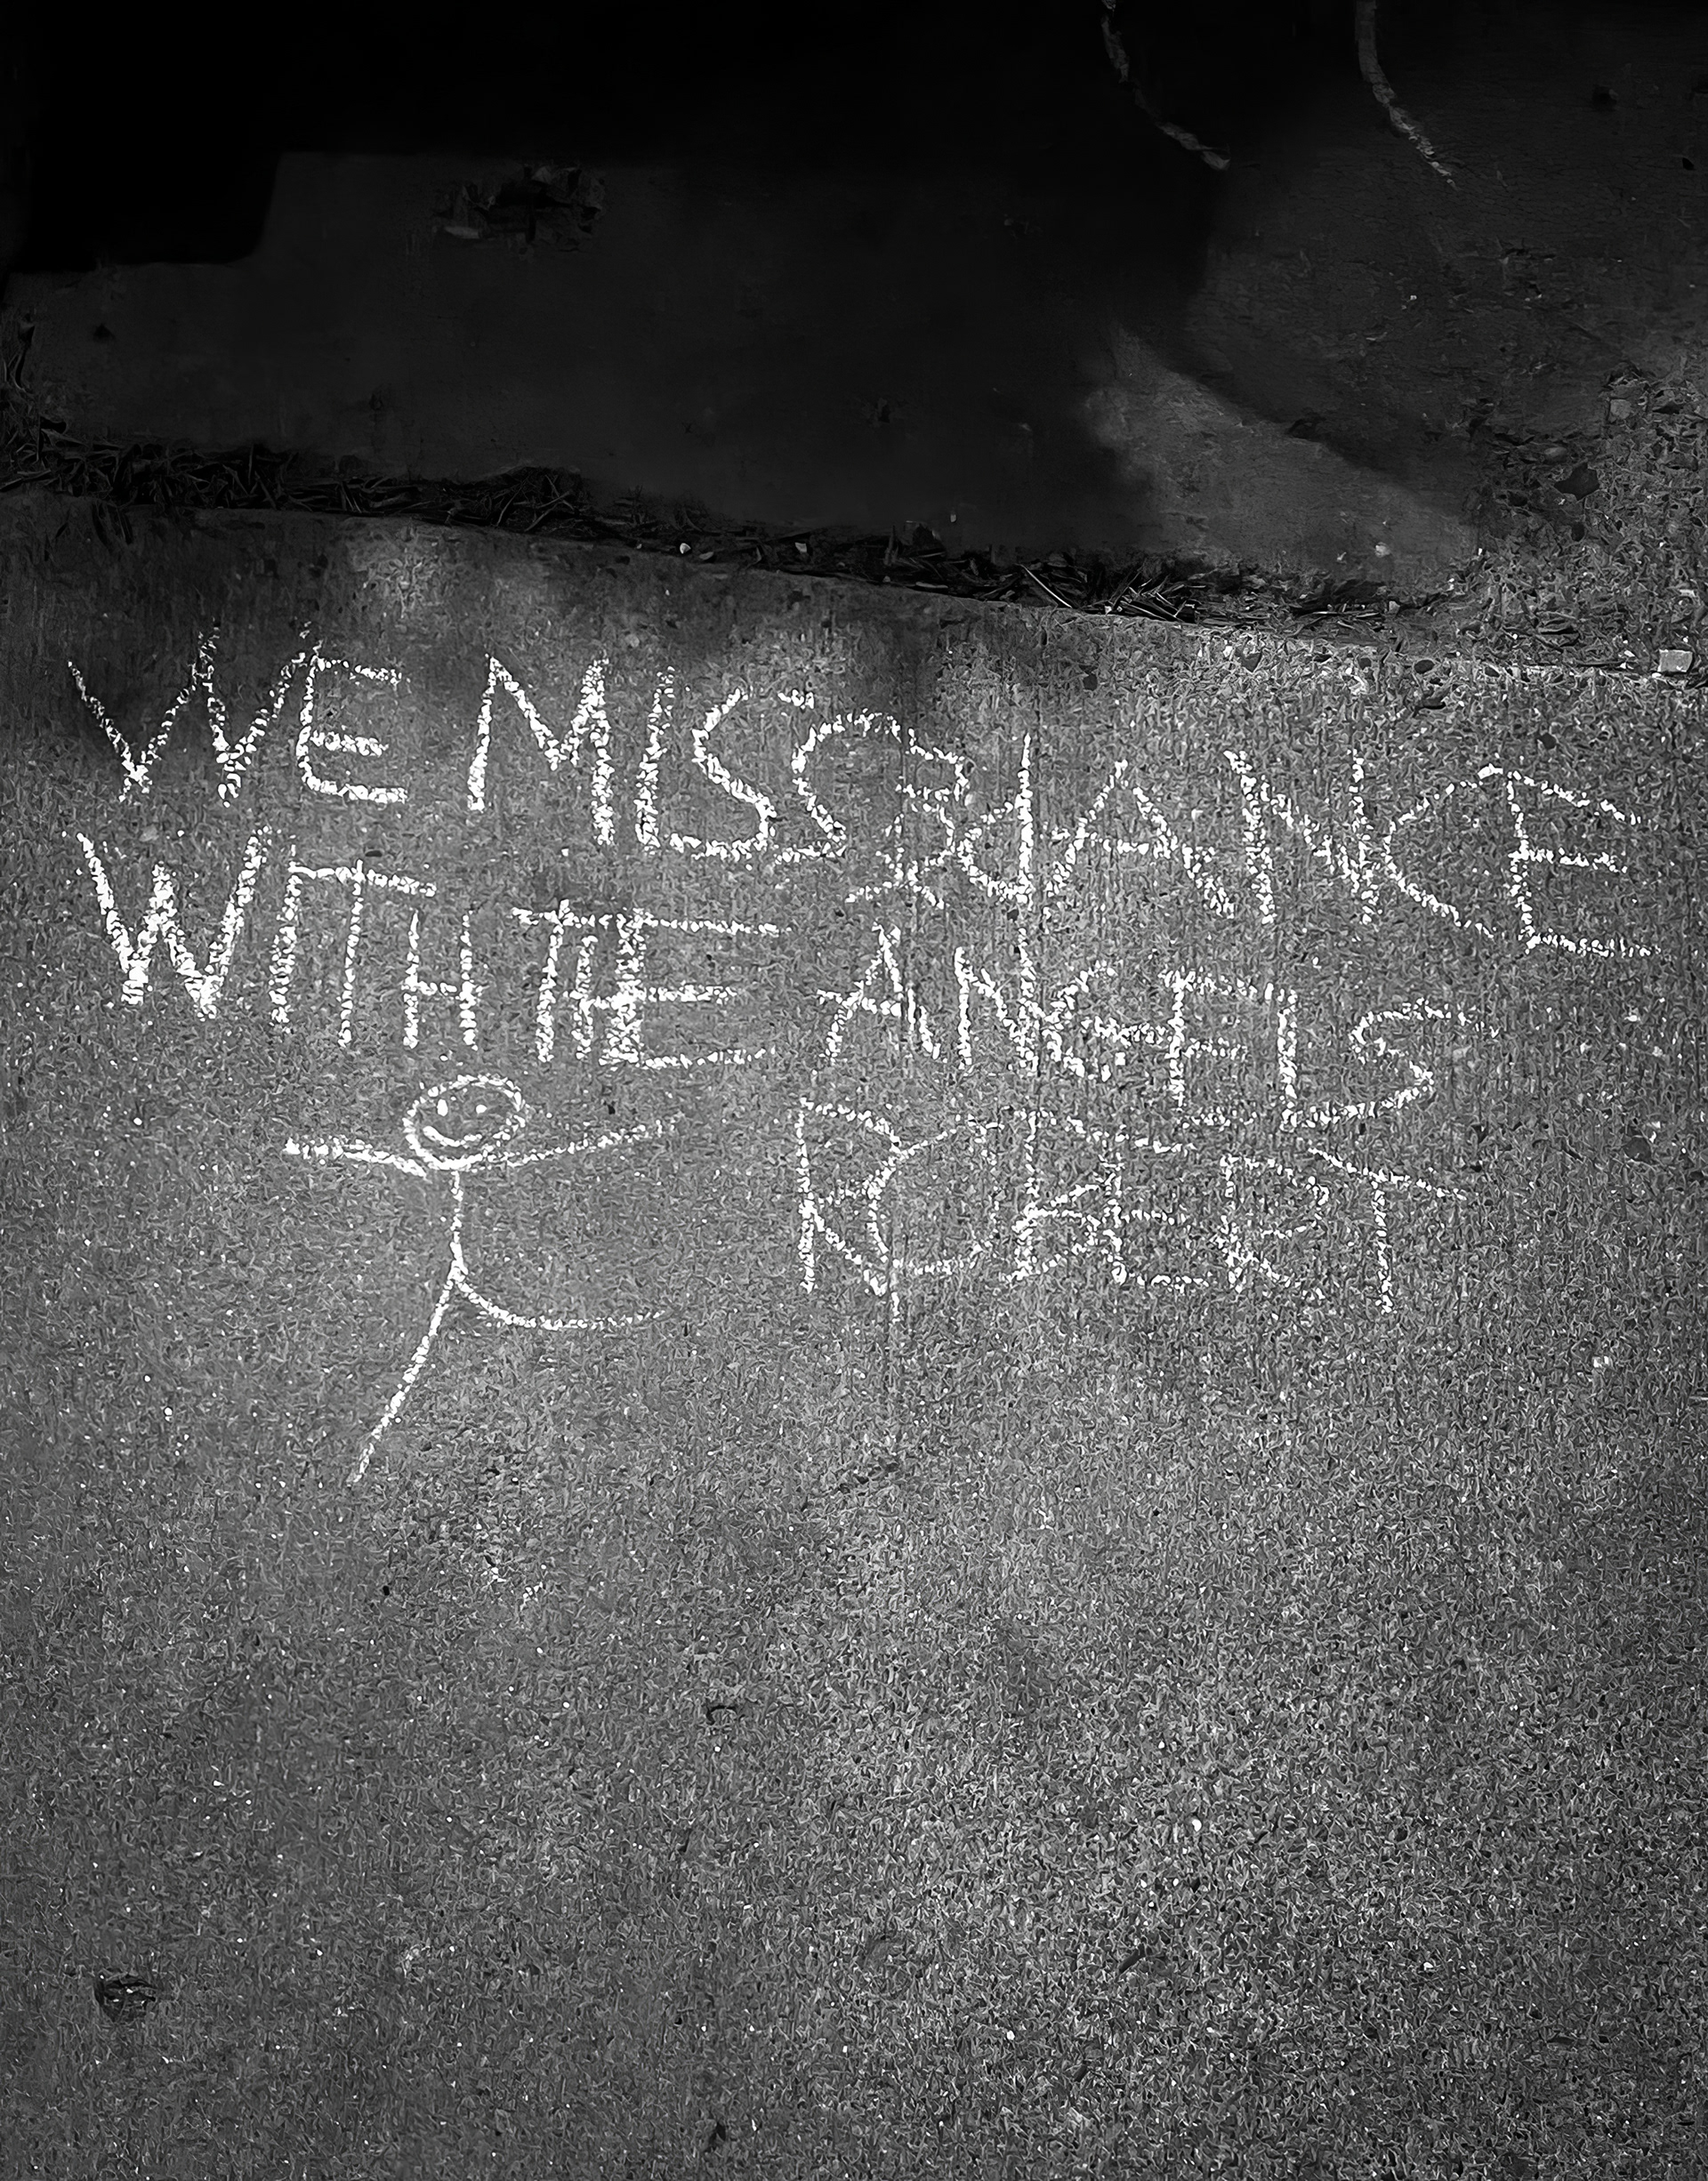 WE MISS dANCE
WITH THE ANGELS
ROBERT